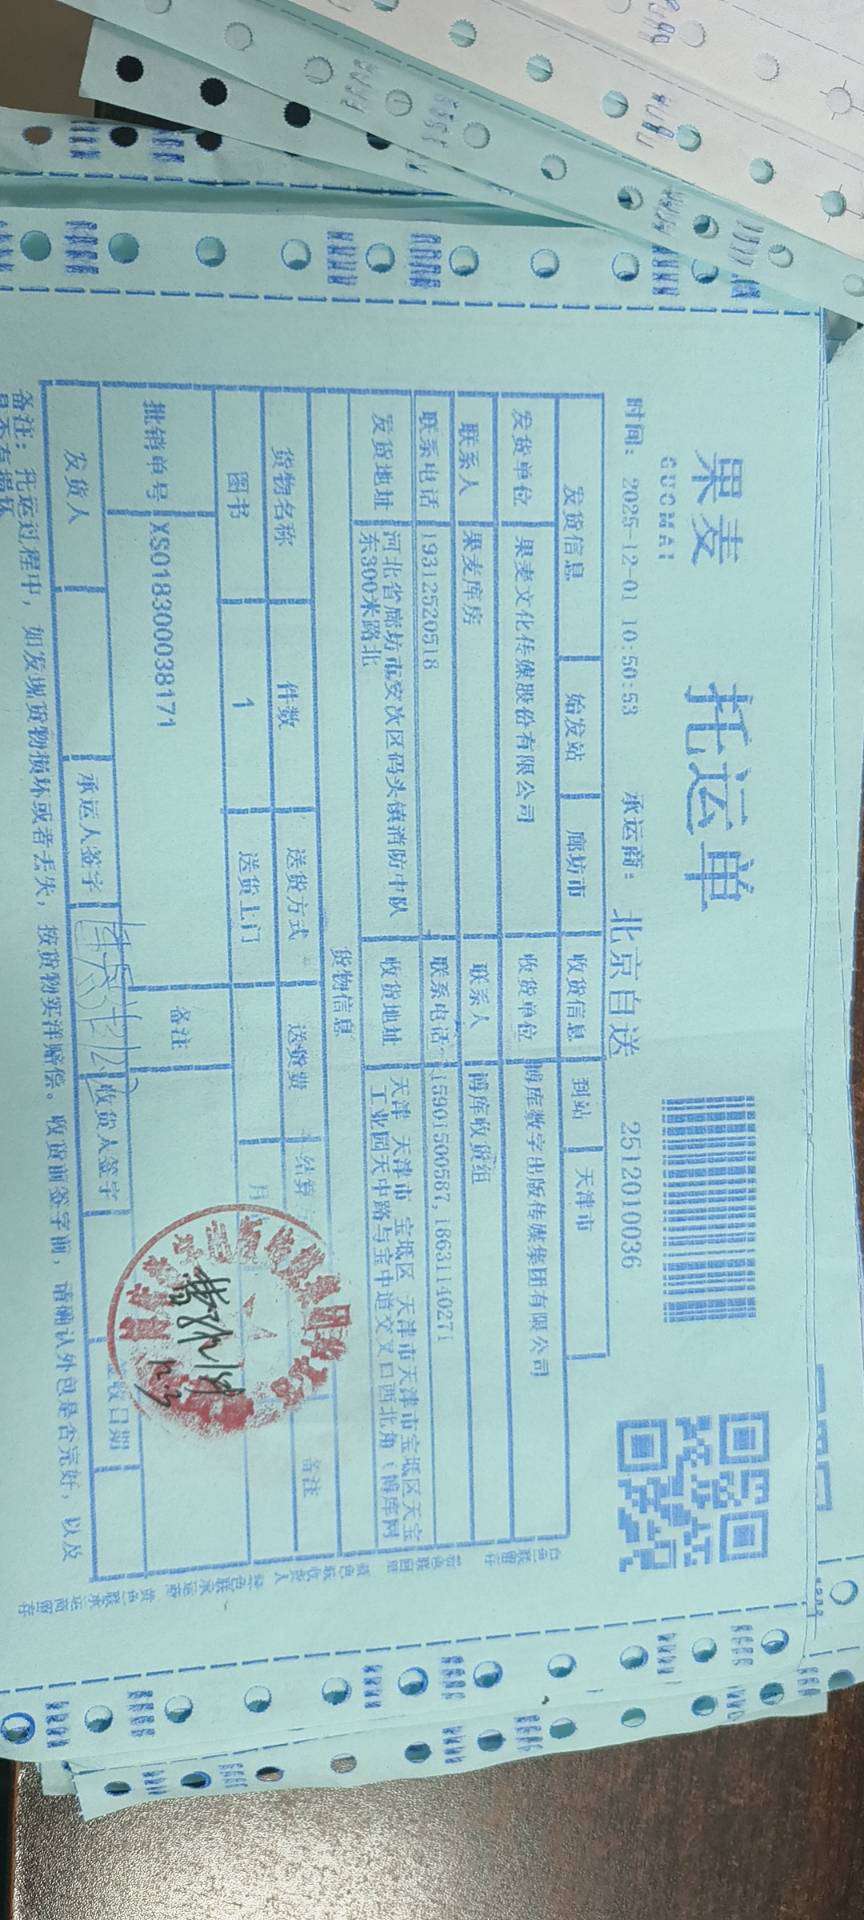 果麦
GUOMAI
托运单
时间: 2025-12-01 10:50:53 承运商: 北京自送 2512010036
发货信息 始发站 廊坊市 收货信息 到站 天津市
发货单位 果麦文化传媒股份有限公司 收货单位 博库数字出版传媒集团有限公司
联系人 果麦库房 联系人 博库收货组
联系电话 19312520518 联系电话 15901500587, 18631140271
发货地址 河北省廊坊市安次区码头镇消防中队东300米路北 收货地址 天津 天津市 宝坻区 天津市天津市宝坻区天宝工业园天中路与宝中道交叉口西北角(博库网
货物信息
货物名称 件数 送货方式 送货费 结算 备注
图书 1 送货上门 月
批销单号 XS018300038171 备注
发货人 承运人签字 收货人签字 签收日期
备注: 托运过程中, 如发现货物损坏或者丢失, 按货物实洋赔偿。收货前签字前, 请确认外包是否完好, 以及
是否有损坏